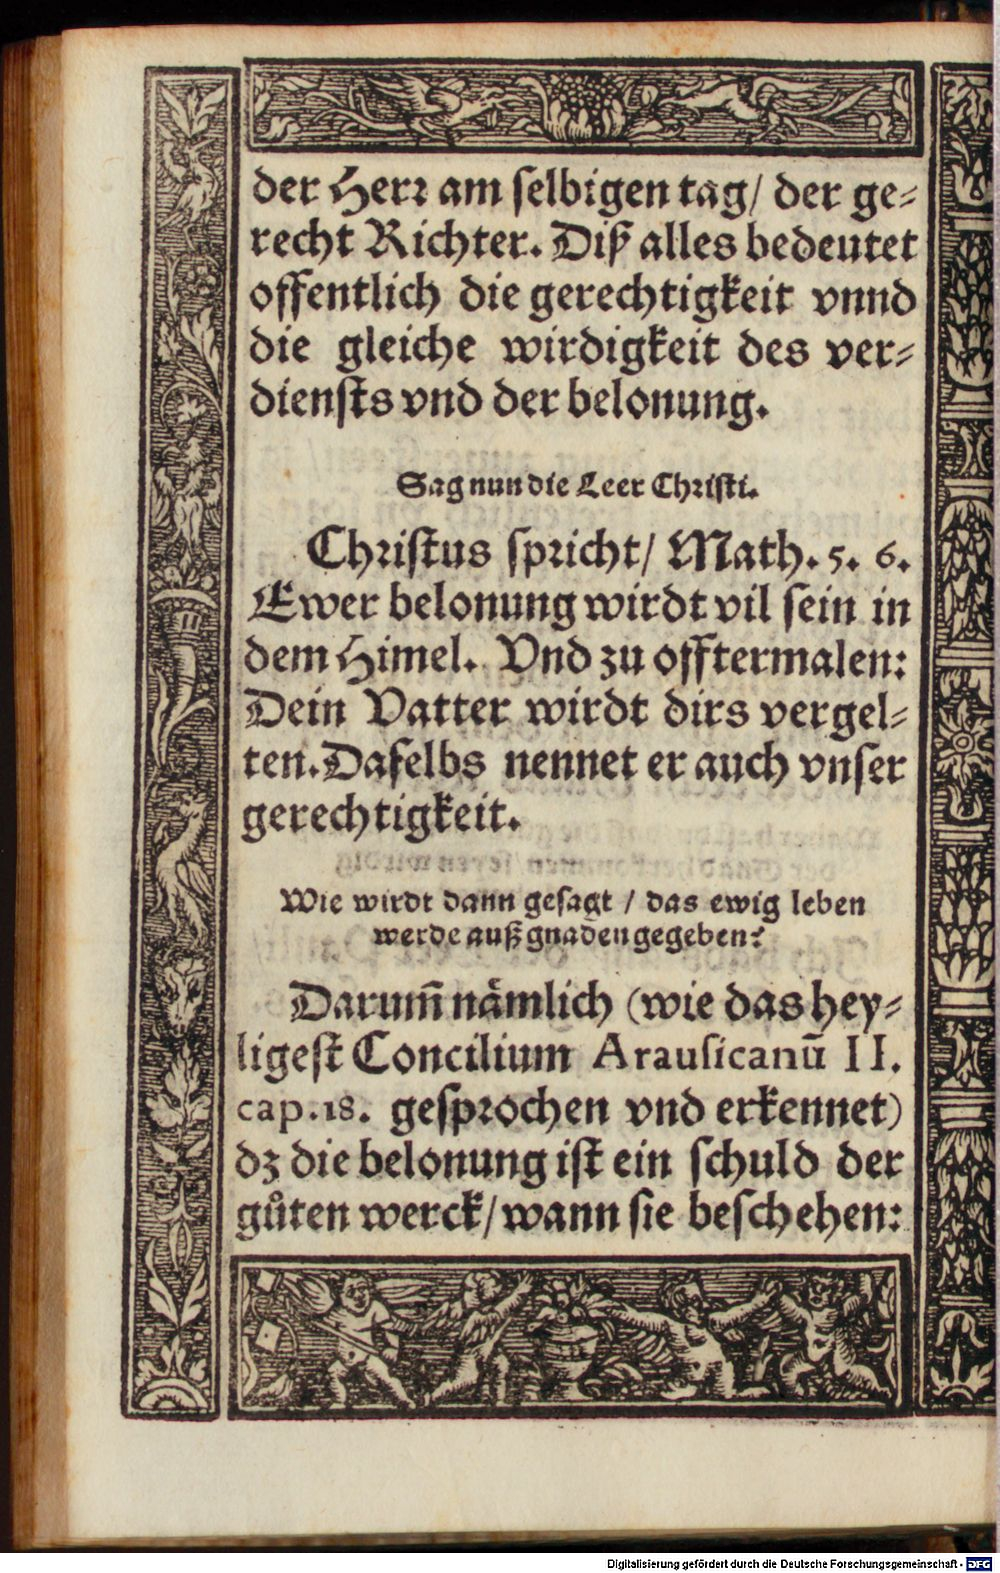 der Herr am selbigen tag/ der ge⸗
recht Richter. Diß alles bedeutet
offentlich die gerechtigkeit vnnd
die gleiche wirdigkeit des ver⸗
diensts vnd der belonung.
Sag nun die Leer Christi.
Christus spricht/ Math. 5. 6.
Ewer belonung wirdt vil sein in
dem Himel. Vnd zu offtermalen:
Dein Vatter wirdt dirs vergel⸗
ten. Daselbs nennet er auch vnser
gerechtigkeit.
Wie wirdt dann gesagt / das ewig leben
werde auß gnaden gegeben?
Darum̃ nämlich (wie das hey⸗
ligest Concilium Arausicanū II.
cap. 18. gesprochen vnd erkennet)
dz die belonung ist ein schuld der
gůten werck/ wann sie beschehen:
Digitalisierung gefördert durch die Deutsche Forschungsgemeinschaft - DFG